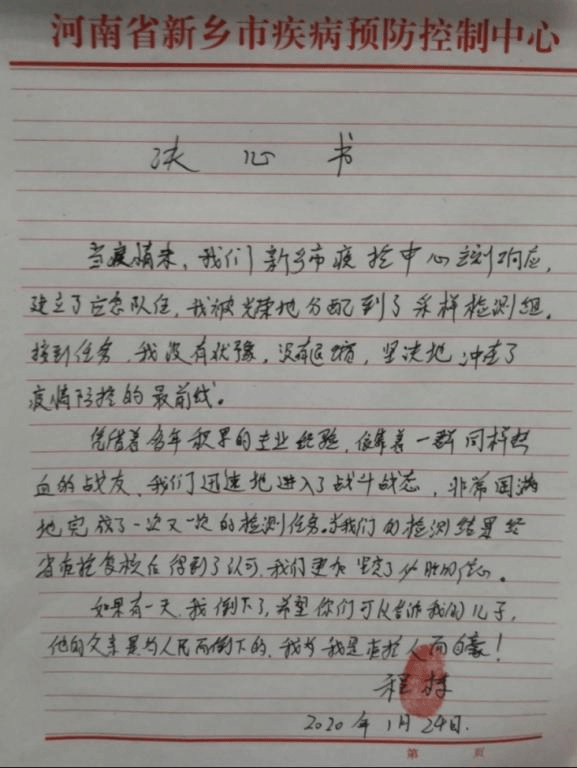 河南省新乡市疾病预防控制中心
决心书
当疫情来，我们新乡市疾控中心立刻响应，
建立了应急队伍，我被光荣地分配到了采样检测组。
接到任务，我没有犹豫，没有退缩，坚决地冲在了
疫情防控的最前线。
凭借着多年积累的专业经验，依靠着一群同样热
血的战友，我们迅速地进入了战斗状态，非常圆满
地完成了一次又一次的检测任务。当我们的检测结果经
省疾控复核后得到了认可，我们更加坚定了必胜的信心。
如果有一天，我倒下了，希望你们可以告诉我的儿子，
他的父亲是为人民而倒下的，我为我是疾控人而自豪！
程
2020年1月24日.
第 页